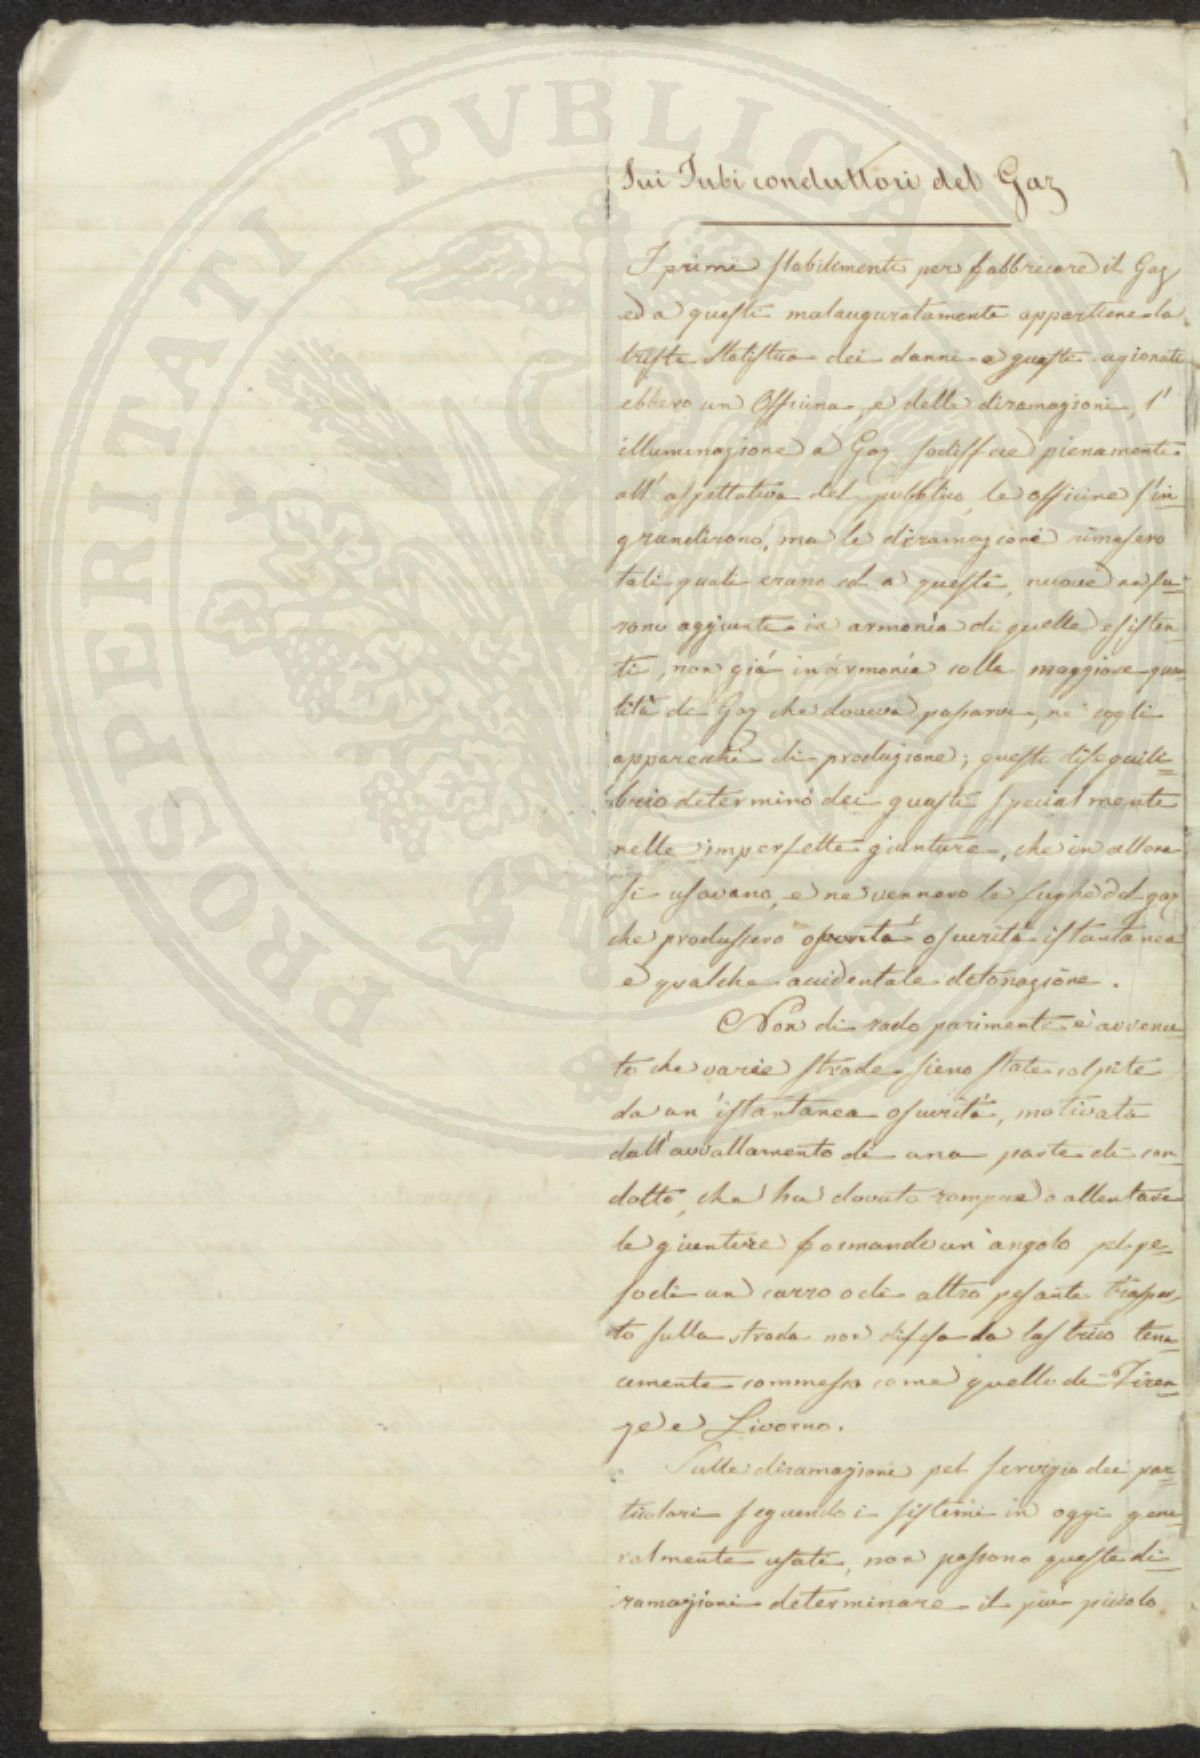 PROSPERITATI PUBLICAE AUGENDAE
Sui Tubi conduttori del Gaz
I primi stabilimenti per fabbricare il Gaz
ed a questi malauguratamente appartiene la
triste statistica dei danni a questi cagionati
ebbero un Officina, e delle diramazioni, l'
illuminazione a Gaz sodisfece pienamente
all'aspettativa del pubblico, le officine s'in
grandirono, ma le diramazioni rimasero
tali quali erano ed a queste, nuove ne fu-
rono aggiunte in armonia di quelle esisten
ti, non già in armonia colla maggiore quan
tità di Gaz che doveva passarvi, nè cogli
apparecchi di produzione; questo disequili-
brio determinò dei guasti specialmente
nelle imperfette giunture, che in allora
si usavano, e ne vennero le fughe del gaz
che produssero oscurità istantanea
e qualche accidentale detonazione.
Non di rado parimente è avvenu
to che varie strade sieno state colpite
da un'istantanea oscurità, motivata
dall'avvallamento di una parte di con
dotto, che ha dovuto rompere o allentare
le giunture formando un'angolo pel pe-
so di un carro o di altro pesante traspor-
to sulla strada non difesa da lastrico tena
cemente commesso come quello di Firen
ze e Livorno.
Sulle diramazioni pel servigio dei par
ticolari seguendo i sistemi in oggi gene
ralmente usati, non possono queste di-
ramazioni determinare il più piccolo